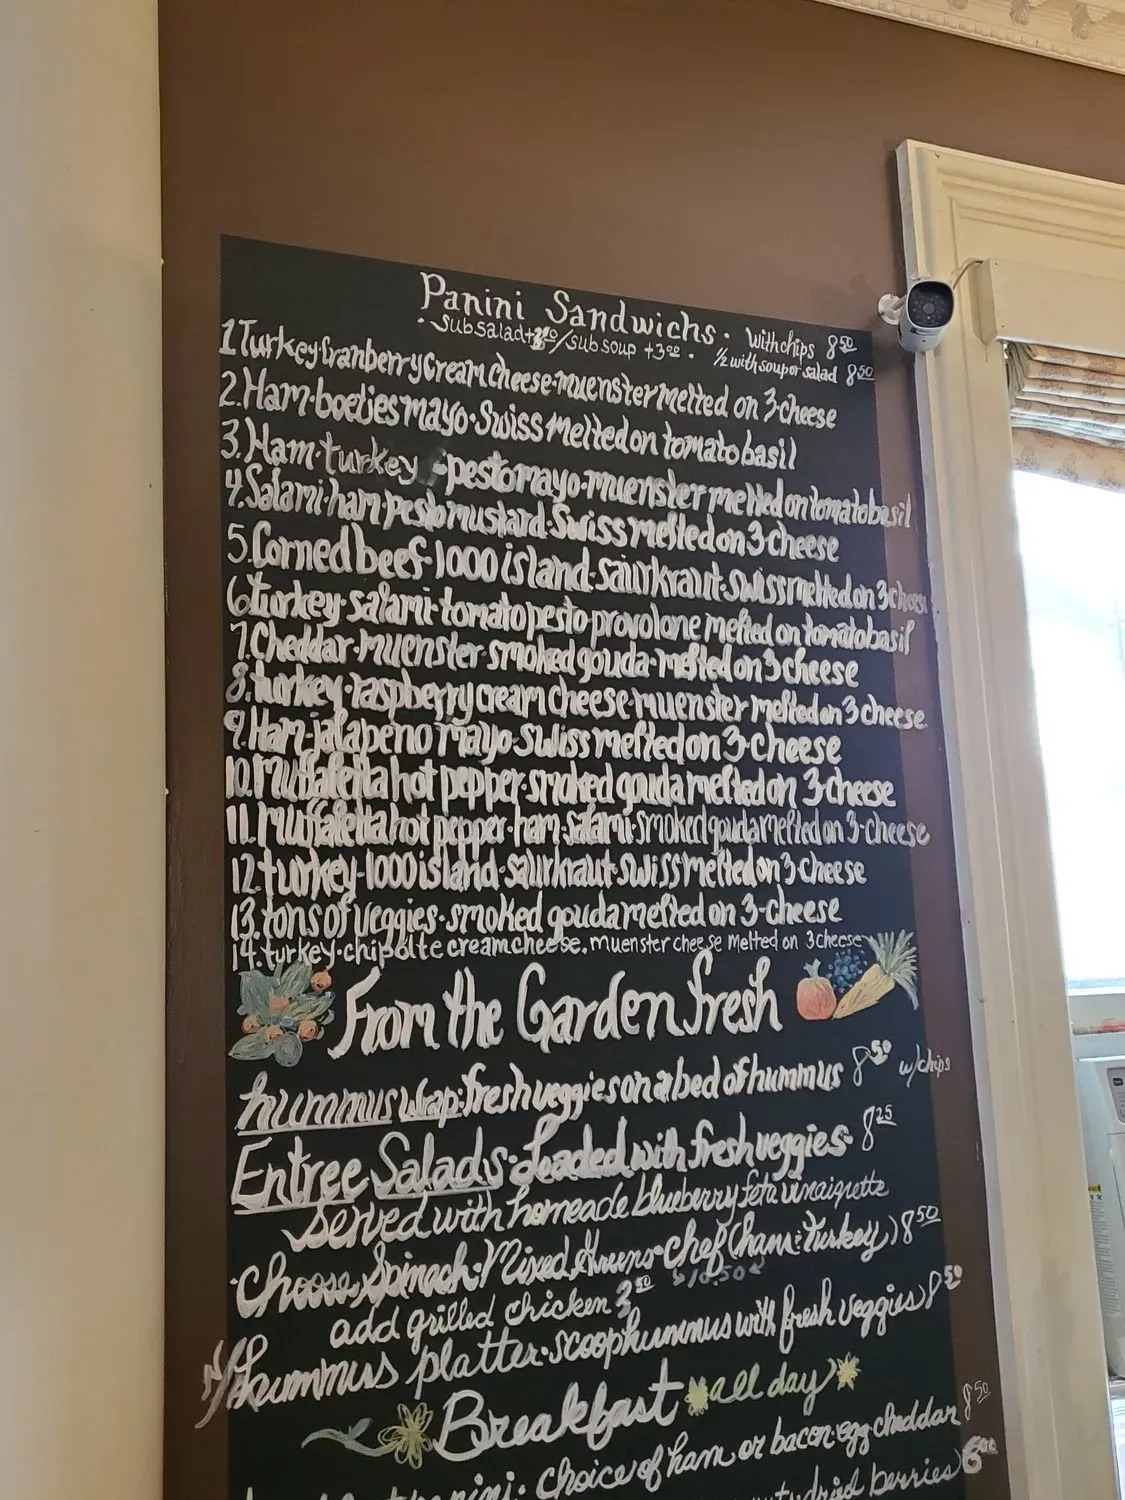 Panini Sandwichs. With chips 8.50
• sub salad + / sub soup +3.00 • 1/2 with soup or salad 8.50
1 Turkey•Cranberry Cream cheese•muenster melted on 3•cheese
2. Ham•boetjes mayo•Swiss melted on tomato basil
3. Ham•turkey •pesto mayo•muenster melted on tomato basil
4. Salami•ham pesto mustard•Swiss melted on 3 cheese
5. Corned beef•1000 island•saurkraut•Swiss melted on 3 cheese
6. turkey•salami•tomato pesto•provolone melted on tomato basil
7. Cheddar•muenster•smoked gouda•melted on 3 cheese
8. turkey•raspberry cream cheese•muenster melted on 3 cheese
9. Ham•jalapeno mayo•Swiss melted on 3•cheese
10. muffaletta hot pepper•smoked gouda melted on 3•cheese
11. muffaletta hot pepper•ham•salami•smoked gouda melted on 3•cheese
12. turkey•1000 island•saurkraut•swiss melted on 3•cheese
13. tons of veggies•smoked gouda melted on 3-cheese
14. turkey•chipolte cream cheese. muenster cheese melted on 3 cheese
From the Garden fresh
hummus wrap: fresh veggies on a bed of hummus 8.50 w/chips
Entree Salads•Loaded with fresh veggies• 8.25
served with homeade blueberry feta vinaigrette
•Choose Spinach•Mixed Greens•Chef (ham & turkey) 8.50
add grilled chicken $10.50
hummus platter•scoop hummus with fresh veggies 8.50
Breakfast all day
panini: choice of ham or bacon•egg•cheddar 8.50
dried berries 6.00